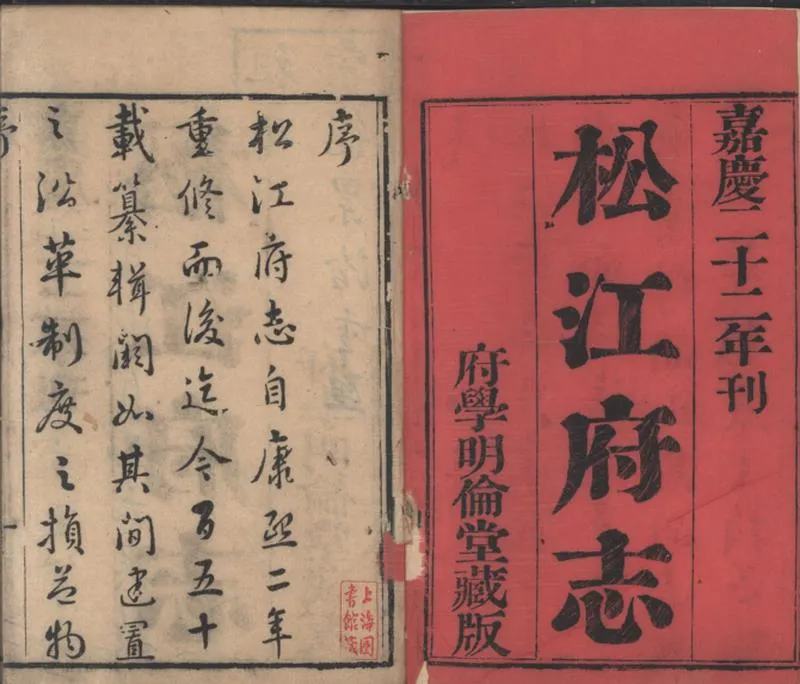 嘉慶二十二年刊
松江府志
府學明倫堂藏版
序
松江府志自康熙二年
重修而後迄今百五十
載纂輯闕如其間建置
之沿革制度之損益物
上海圖
書館藏
序